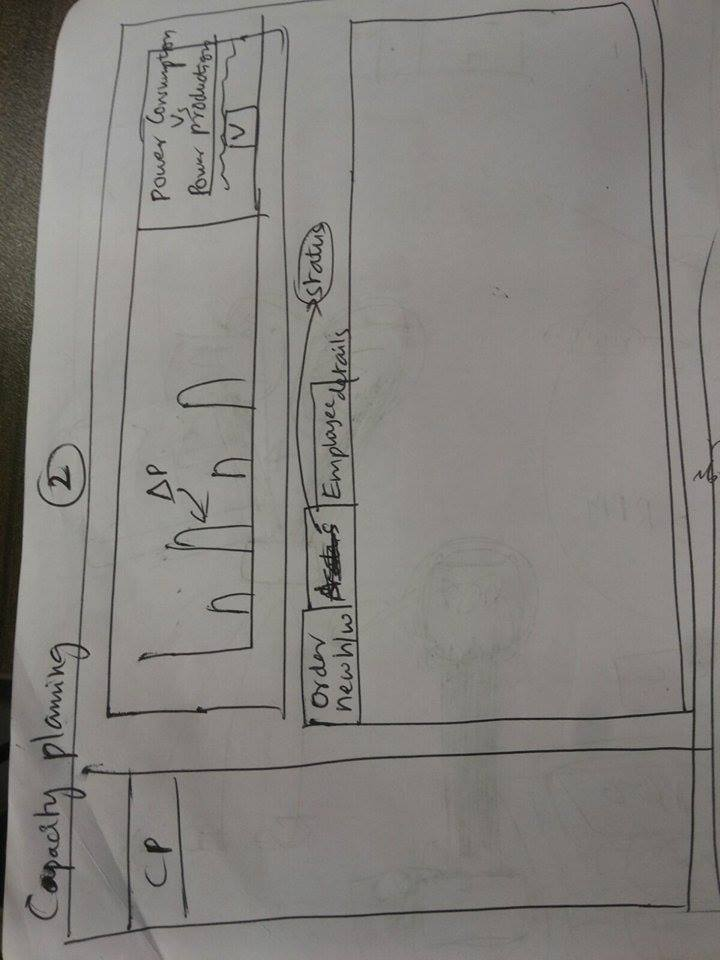 Capacity planning
2
CP
ΔP
Power Consumption
Vs
Power production
V
Order
new h/w
Employee
details
status